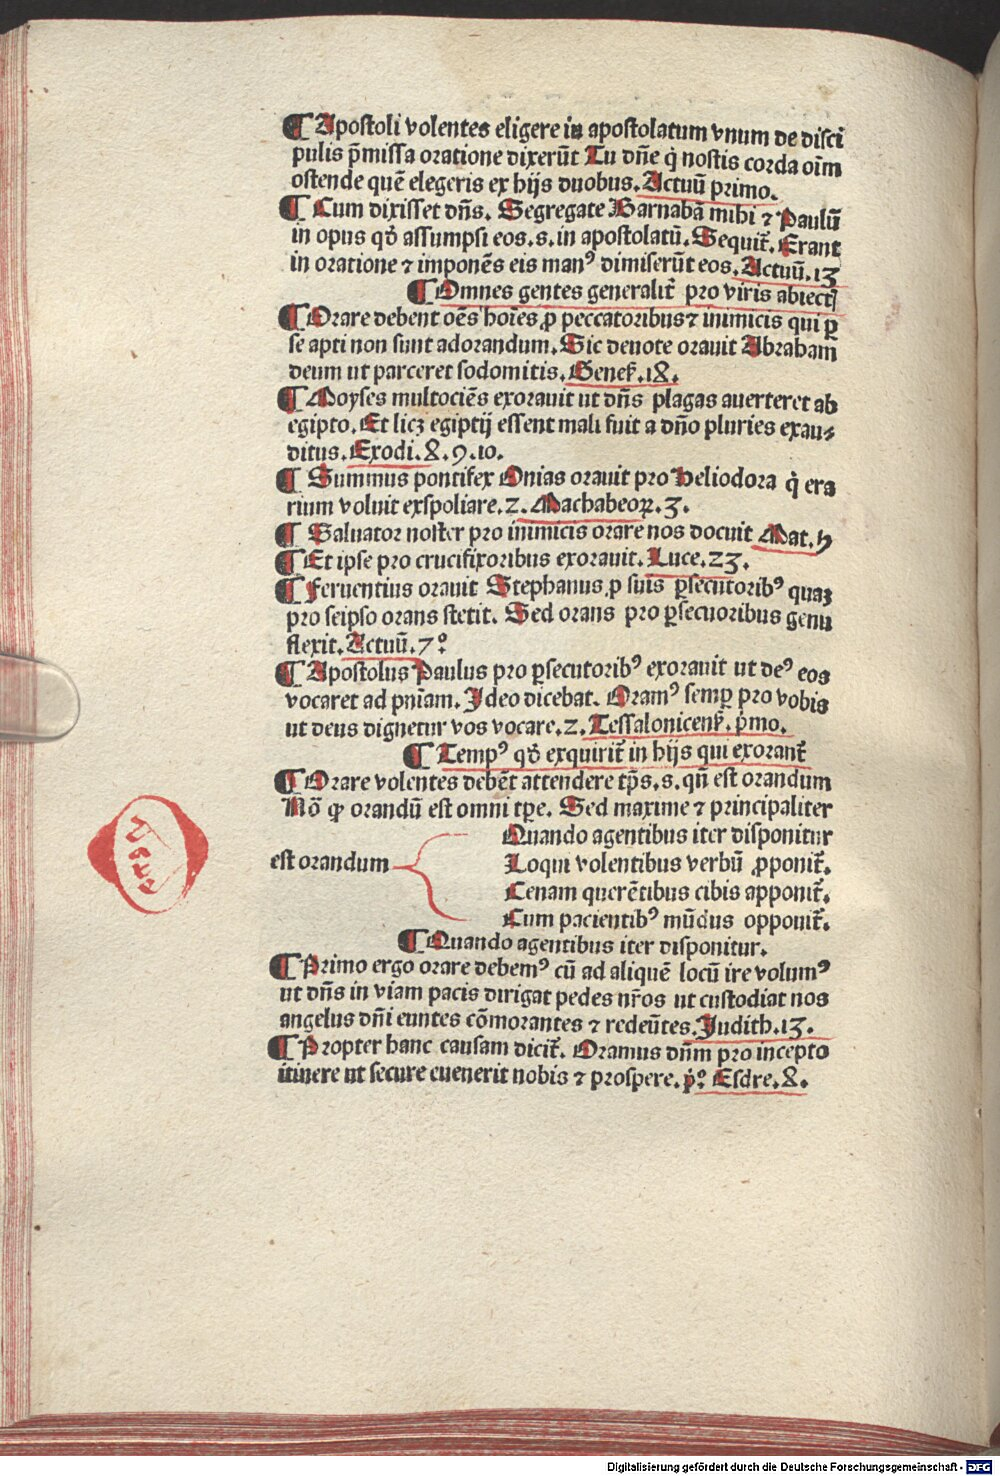 ¶ Apostoli volentes eligere in apostolatum vnum de disci
pulis p̄missa oratione dixerūt Tu dn̄e q̇ nostis corda oīm
ostende quē elegeris ex hijs duobus. Actuū primo.
¶ Cum dixisset dn̄s. Segregate Barnabā mihi ⁊ Paulū
in opus qđ assumpsi eos .s. in apostolatū. Sequit̄. Erant
in oratione ⁊ imponēs eis manꝰ dimiserūt eos. Actuū .13
¶ Omnes gentes generalit̄ pro viris abiecti
¶ Orare debent oēs hoīes ꝓ peccatoribus ⁊ inimicis qui ꝑ
se apti non sunt adorandum. Sic deuote orauit Abraham
deum ut parceret sodomitis. Genes̄. 18.
¶ Moyses multociēs exorauit ut dn̄s plagas auerteret ab
egipto. Et licꝫ egiptij essent mali fuit a dn̄o pluries exau⸗
ditus. Exodi. 8. 9. 10.
¶ Summus pontifex Onias orauit pro Heliodora q̇ era
rium voluit exspoliare. 2. Machabeoꝝ. 3.
¶ Saluator noster pro inimicis orare nos docuit Mat. 5
¶ Et ipse pro crucifixoribus exorauit. Luce. 23.
¶ Feruentius orauit Stephanus ꝓ suis ꝑsecutoribꝰ quaꝫ
pro seipso orans stetit. Sed orans pro ꝑsecuoribus genu
flexit. Actuū. 7º
¶ Apostolus Paulus pro ꝑsecutoribꝰ exorauit ut deꝰ eos
vocaret ad pn̄iam. Ideo dicebat. Oramꝰ semꝑ pro vobis
ut deus dignetur vos vocare. 2. Tessalonicens̄. p̄mo.
¶ Tempꝰ qđ exquirit̄ in hijs qui exorant̄
¶ Orare volentes debēt attendere tp̄s .s. qn̄ est orandum
Nō ꝙ orandū est omni tꝑe. Sed maxime ⁊ principaliter
Quando agentibus iter disponitur
est orandum
Loqui volentibus verbū ꝓponit̄.
Cenam querētibus cibis apponit̄.
Cum pacientibꝰ mūdus opponit̄.
¶ Quando agentibus iter disponitur.
¶ Primo ergo orare debemꝰ cū ad aliquē locū ire volumꝰ
ut dn̄s in viam pacis dirigat pedes nr̄os ut custodiat nos
angelus dn̄i euntes cōmorantes ⁊ redeūtes. Judith. 13.
¶ Propter hanc causam dicit̄. Oramus dn̄m pro incepto
itinere ut secure euenerit nobis ⁊ prospere. p̄º Esdre. 8.
Digitalisierung gefördert durch die Deutsche Forschungsgemeinschaft - DFG